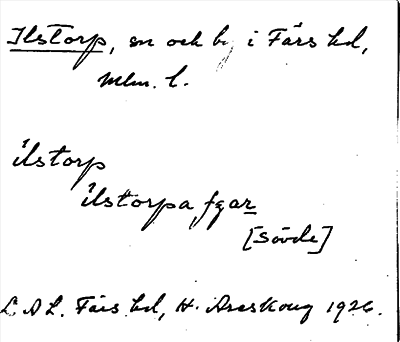 Ilstorp, sn och by i Färs hd,
Mlm. l.
ilstorp
ilstorpa fgar
[Sövde]
L A L. Färs hd, H. Areskoug 1926.